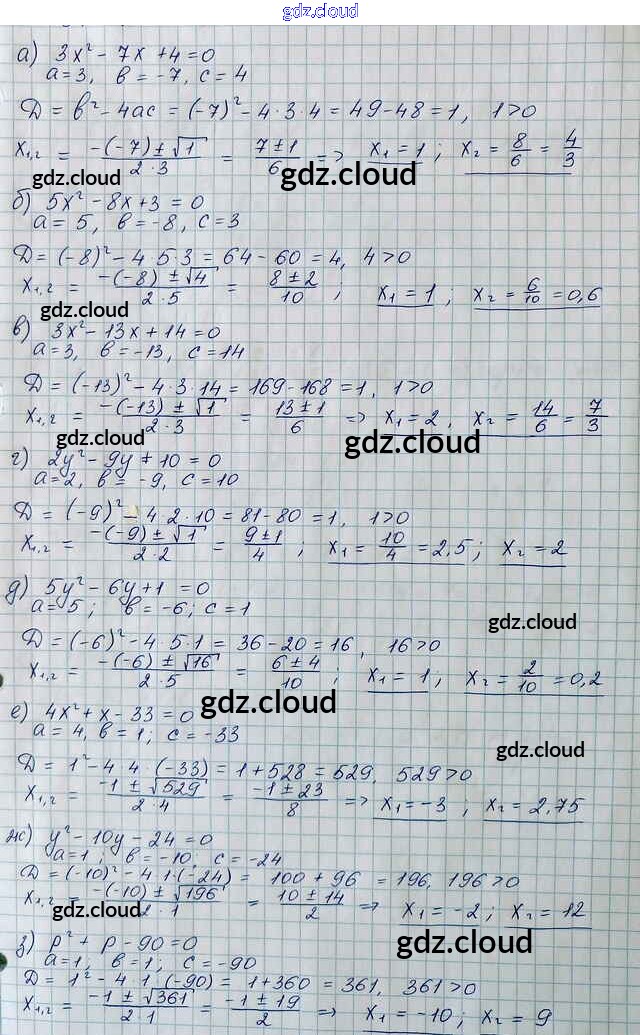 gdz.cloud
а) 3x² - 7x + 4 = 0
a = 3, b = -7, c = 4
D = b² - 4ac = (-7)² - 4·3·4 = 49 - 48 = 1, 1 > 0
x₁,₂ = (-(-7) ± √1)/(2·3) = (7 ± 1)/6 => x₁ = 1; x₂ = 8/6 = 4/3
gdz.cloud gdz.cloud
б) 5x² - 8x + 3 = 0
a = 5, b = -8, c = 3
D = (-8)² - 4·5·3 = 64 - 60 = 4, 4 > 0
x₁,₂ = (-(-8) ± √4)/(2·5) = (8 ± 2)/10; x₁ = 1; x₂ = 6/10 = 0,6
gdz.cloud
в) 3x² - 13x + 14 = 0
a = 3, b = -13, c = 14
gdz.cloud
D = (-13)² - 4·3·14 = 169 - 168 = 1, 1 > 0
x₁,₂ = (-(-13) ± √1)/(2·3) = (13 ± 1)/6 => x₁ = 2, x₂ = 14/6 = 7/3
gdz.cloud
г) 2y² - 9y + 10 = 0
a = 2, b = -9, c = 10
D = (-9)² - 4·2·10 = 81 - 80 = 1, 1 > 0
x₁,₂ = (-(-9) ± √1)/(2·2) = (9 ± 1)/4; x₁ = 10/4 = 2,5; x₂ = 2
д) 5y² - 6y + 1 = 0
a = 5; b = -6; c = 1
gdz.cloud
D = (-6)² - 4·5·1 = 36 - 20 = 16, 16 > 0
x₁,₂ = (-(-6) ± √16)/(2·5) = (6 ± 4)/10; x₁ = 1; x₂ = 2/10 = 0,2
gdz.cloud
е) 4x² + x - 33 = 0
a = 4, b = 1; c = -33
gdz.cloud
D = 1² - 4·4·(-33) = 1 + 528 = 529, 529 > 0
x₁,₂ = (-1 ± √529)/(2·4) = (-1 ± 23)/8 => x₁ = -3; x₂ = 2,75
ж) y² - 10y - 24 = 0
a = 1; b = -10, c = -24
D = (-10)² - 4·1·(-24) = 100 + 96 = 196, 196 > 0
x₁,₂ = (-(-10) ± √196)/(2·1) = (10 ± 14)/2 => x₁ = -2; x₂ = 12
gdz.cloud
з) p² + p - 90 = 0
a = 1, b = 1; c = -90
gdz.cloud
D = 1² - 4·1·(-90) = 1 + 360 = 361, 361 > 0
x₁,₂ = (-1 ± √361)/(2·1) = (-1 ± 19)/2 => x₁ = -10; x₂ = 9
gdz.cloud